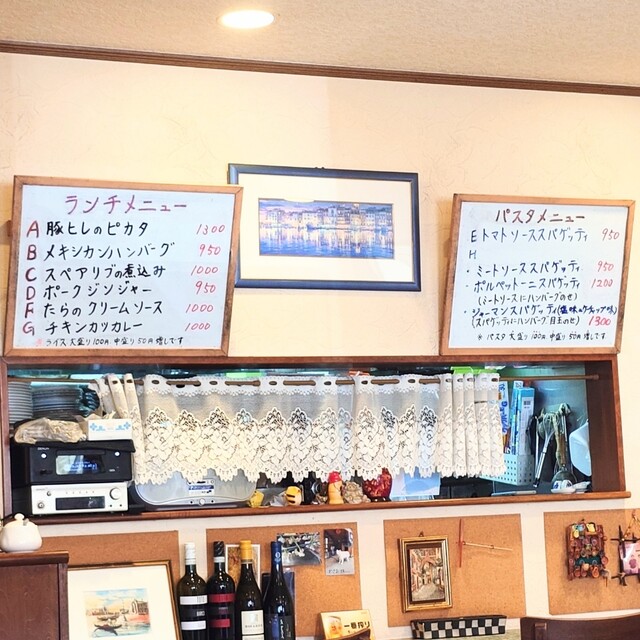 ランチメニュー
A 豚ヒレのピカタ 1300
B メキシカンハンバーグ 950
C スペアリブの煮込み 1000
D ポークジンジャー 950
F たらのクリームソース 1000
G チキンカツカレー 1000
※ライス大盛り100円 中盛り50円増しです
パスタメニュー
E トマトソーススパゲッティ 950
H
・ミートソーススパゲッティ 950
・ポルペットーニスパゲッティ 1200
(ミートソースにハンバーグのせ)
・ジャーマンスパゲッティ(塩味orケチャップ味)
(スパゲッティにハンバーグ目玉のせ) 1300
※パスタ大盛り100円 中盛り50円増しです
一番搾り